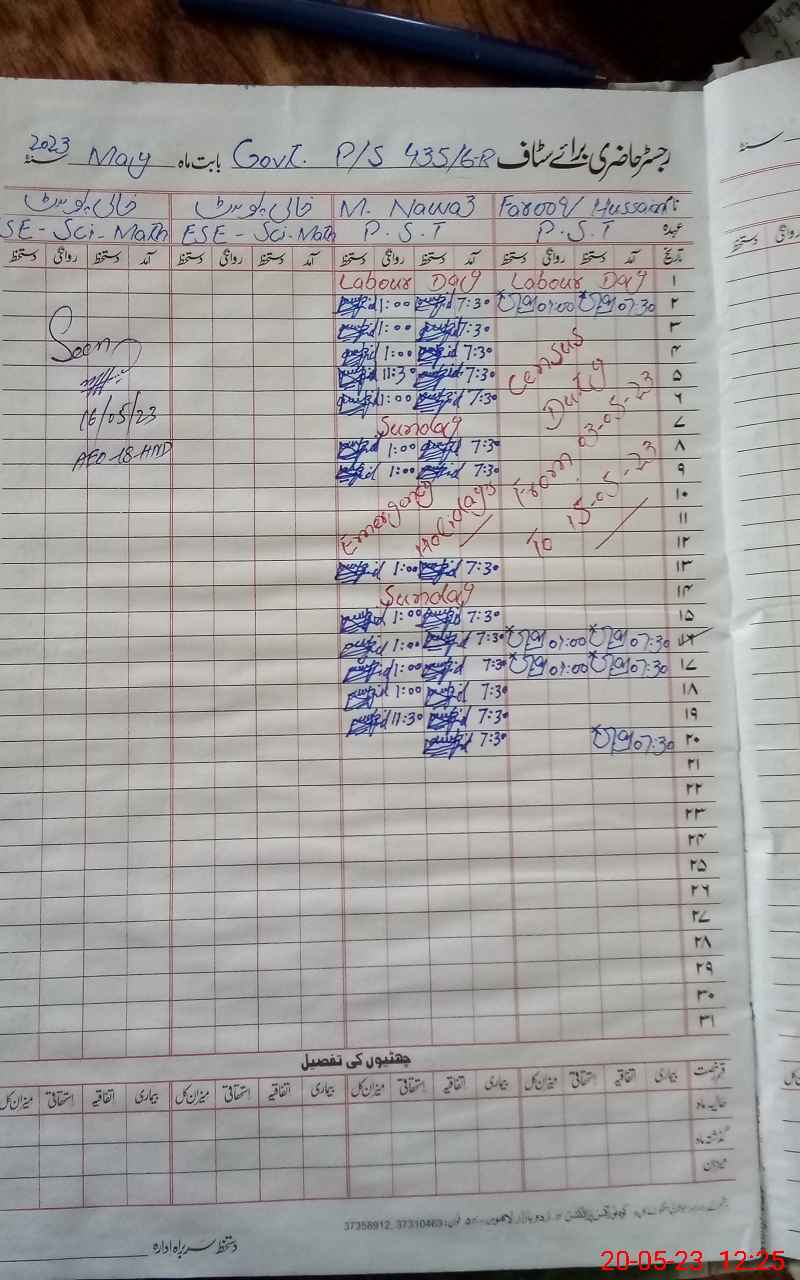 رجسٹر حاضری برائے سٹاف Govt. P/S 435/6-R بابت ماہ May سنہ 2023
نام Farooq Hussain M. Nawaz خالی پوسٹ خالی پوسٹ
عہدہ P.S.T P.S.T ESE - Sci-Math ESE - Sci-Math
تاریخ آمد دستخط روانگی دستخط آمد دستخط روانگی دستخط آمد دستخط روانگی دستخط آمد دستخط روانگی دستخط
۱ Labour Day Labour Day
۲ 07:30 01:00 7:30 1:00
۳ 7:30 1:00
۴ 7:30 1:00
۵ 7:30 11:30
۶ 7:30 1:00
۷ Sunday
۸ 7:30 1:00
۹ 7:30 1:00
۱۰
۱۱
۱۲
Census
Duty
From 03-05-23
To 15-05-23
Emergency
Holidays
۱۳ 7:30 1:00
۱۴ Sunday
۱۵ 7:30 1:00
۱۶ 07:30 01:00 7:30 1:00
۱۷ 07:30 01:00 7:30 1:00
۱۸ 7:30 1:00
۱۹ 7:30 11:30
۲۰ 07:30 7:30
۲۱
۲۲
۲۳
۲۴
۲۵
۲۶
۲۷
۲۸
۲۹
۳۰
۳۱
Seen
16/05/23
AEO-18-HND
چھٹیوں کی تفصیل
قسم رخصت بیماری اتفاقیہ استحقاقی میزان کل بیماری اتفاقیہ استحقاقی میزان کل بیماری اتفاقیہ استحقاقی میزان کل بیماری اتفاقیہ استحقاقی میزان کل
حالیہ ماہ
گذشتہ ماہ
میزان
اردو بازار لاہور فون: 37310469, 37358912
دستخط سربراہ ادارہ
20-05-23 12:25